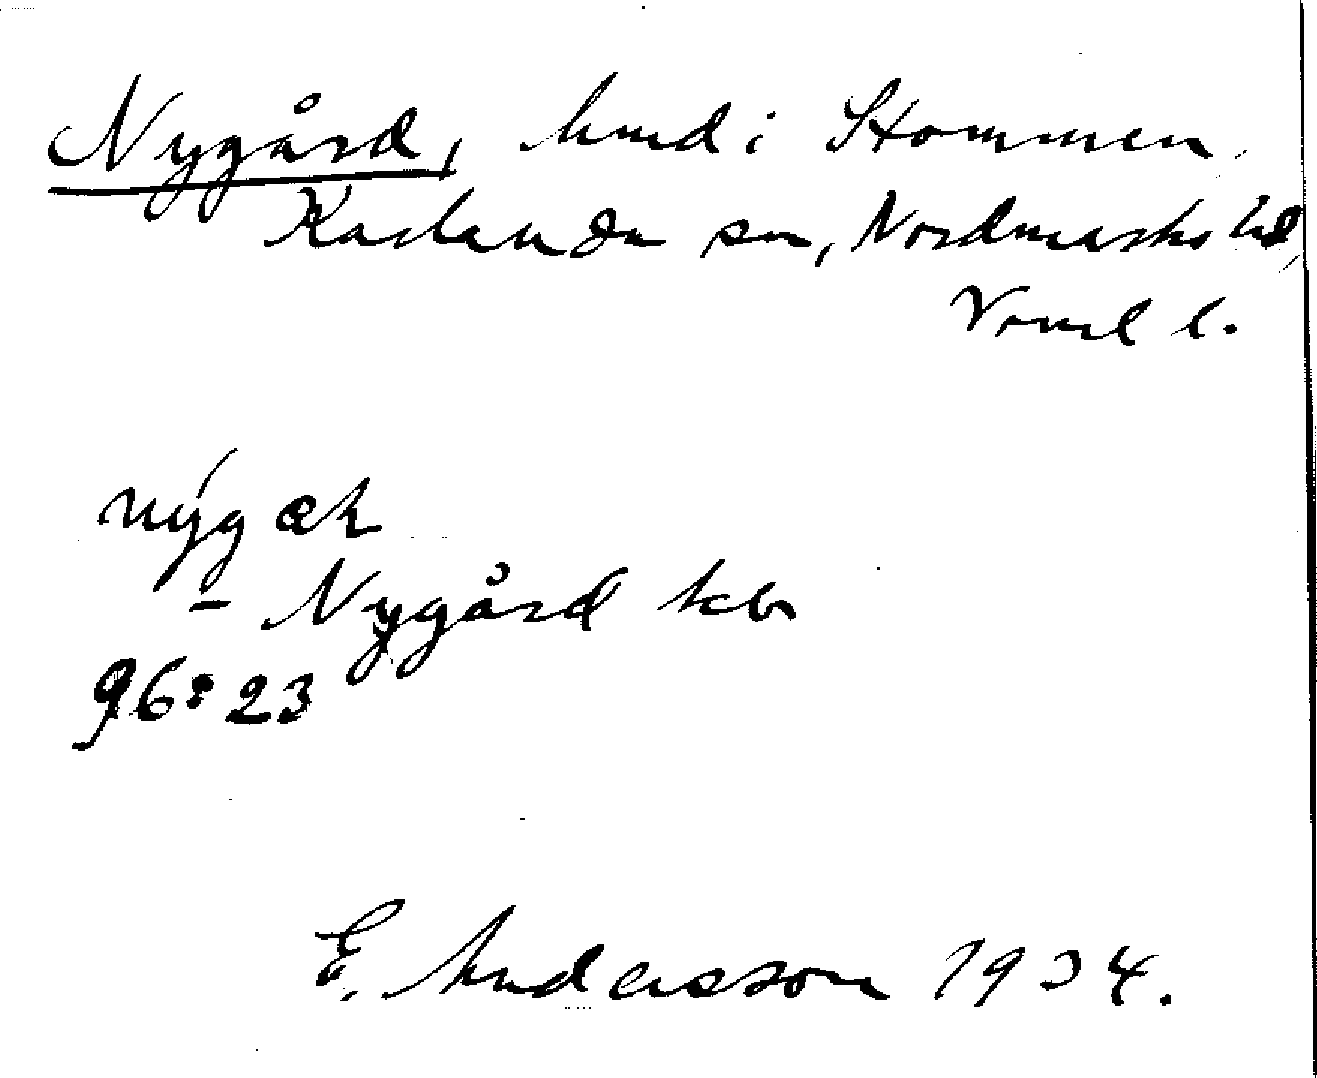 Nygård, hmd i Stommen,
Karlanda sn, Nordmarks hd,
Vrml l.
nýgæṇ
– Nygård kbr
96:23
E. Andersson 1934.